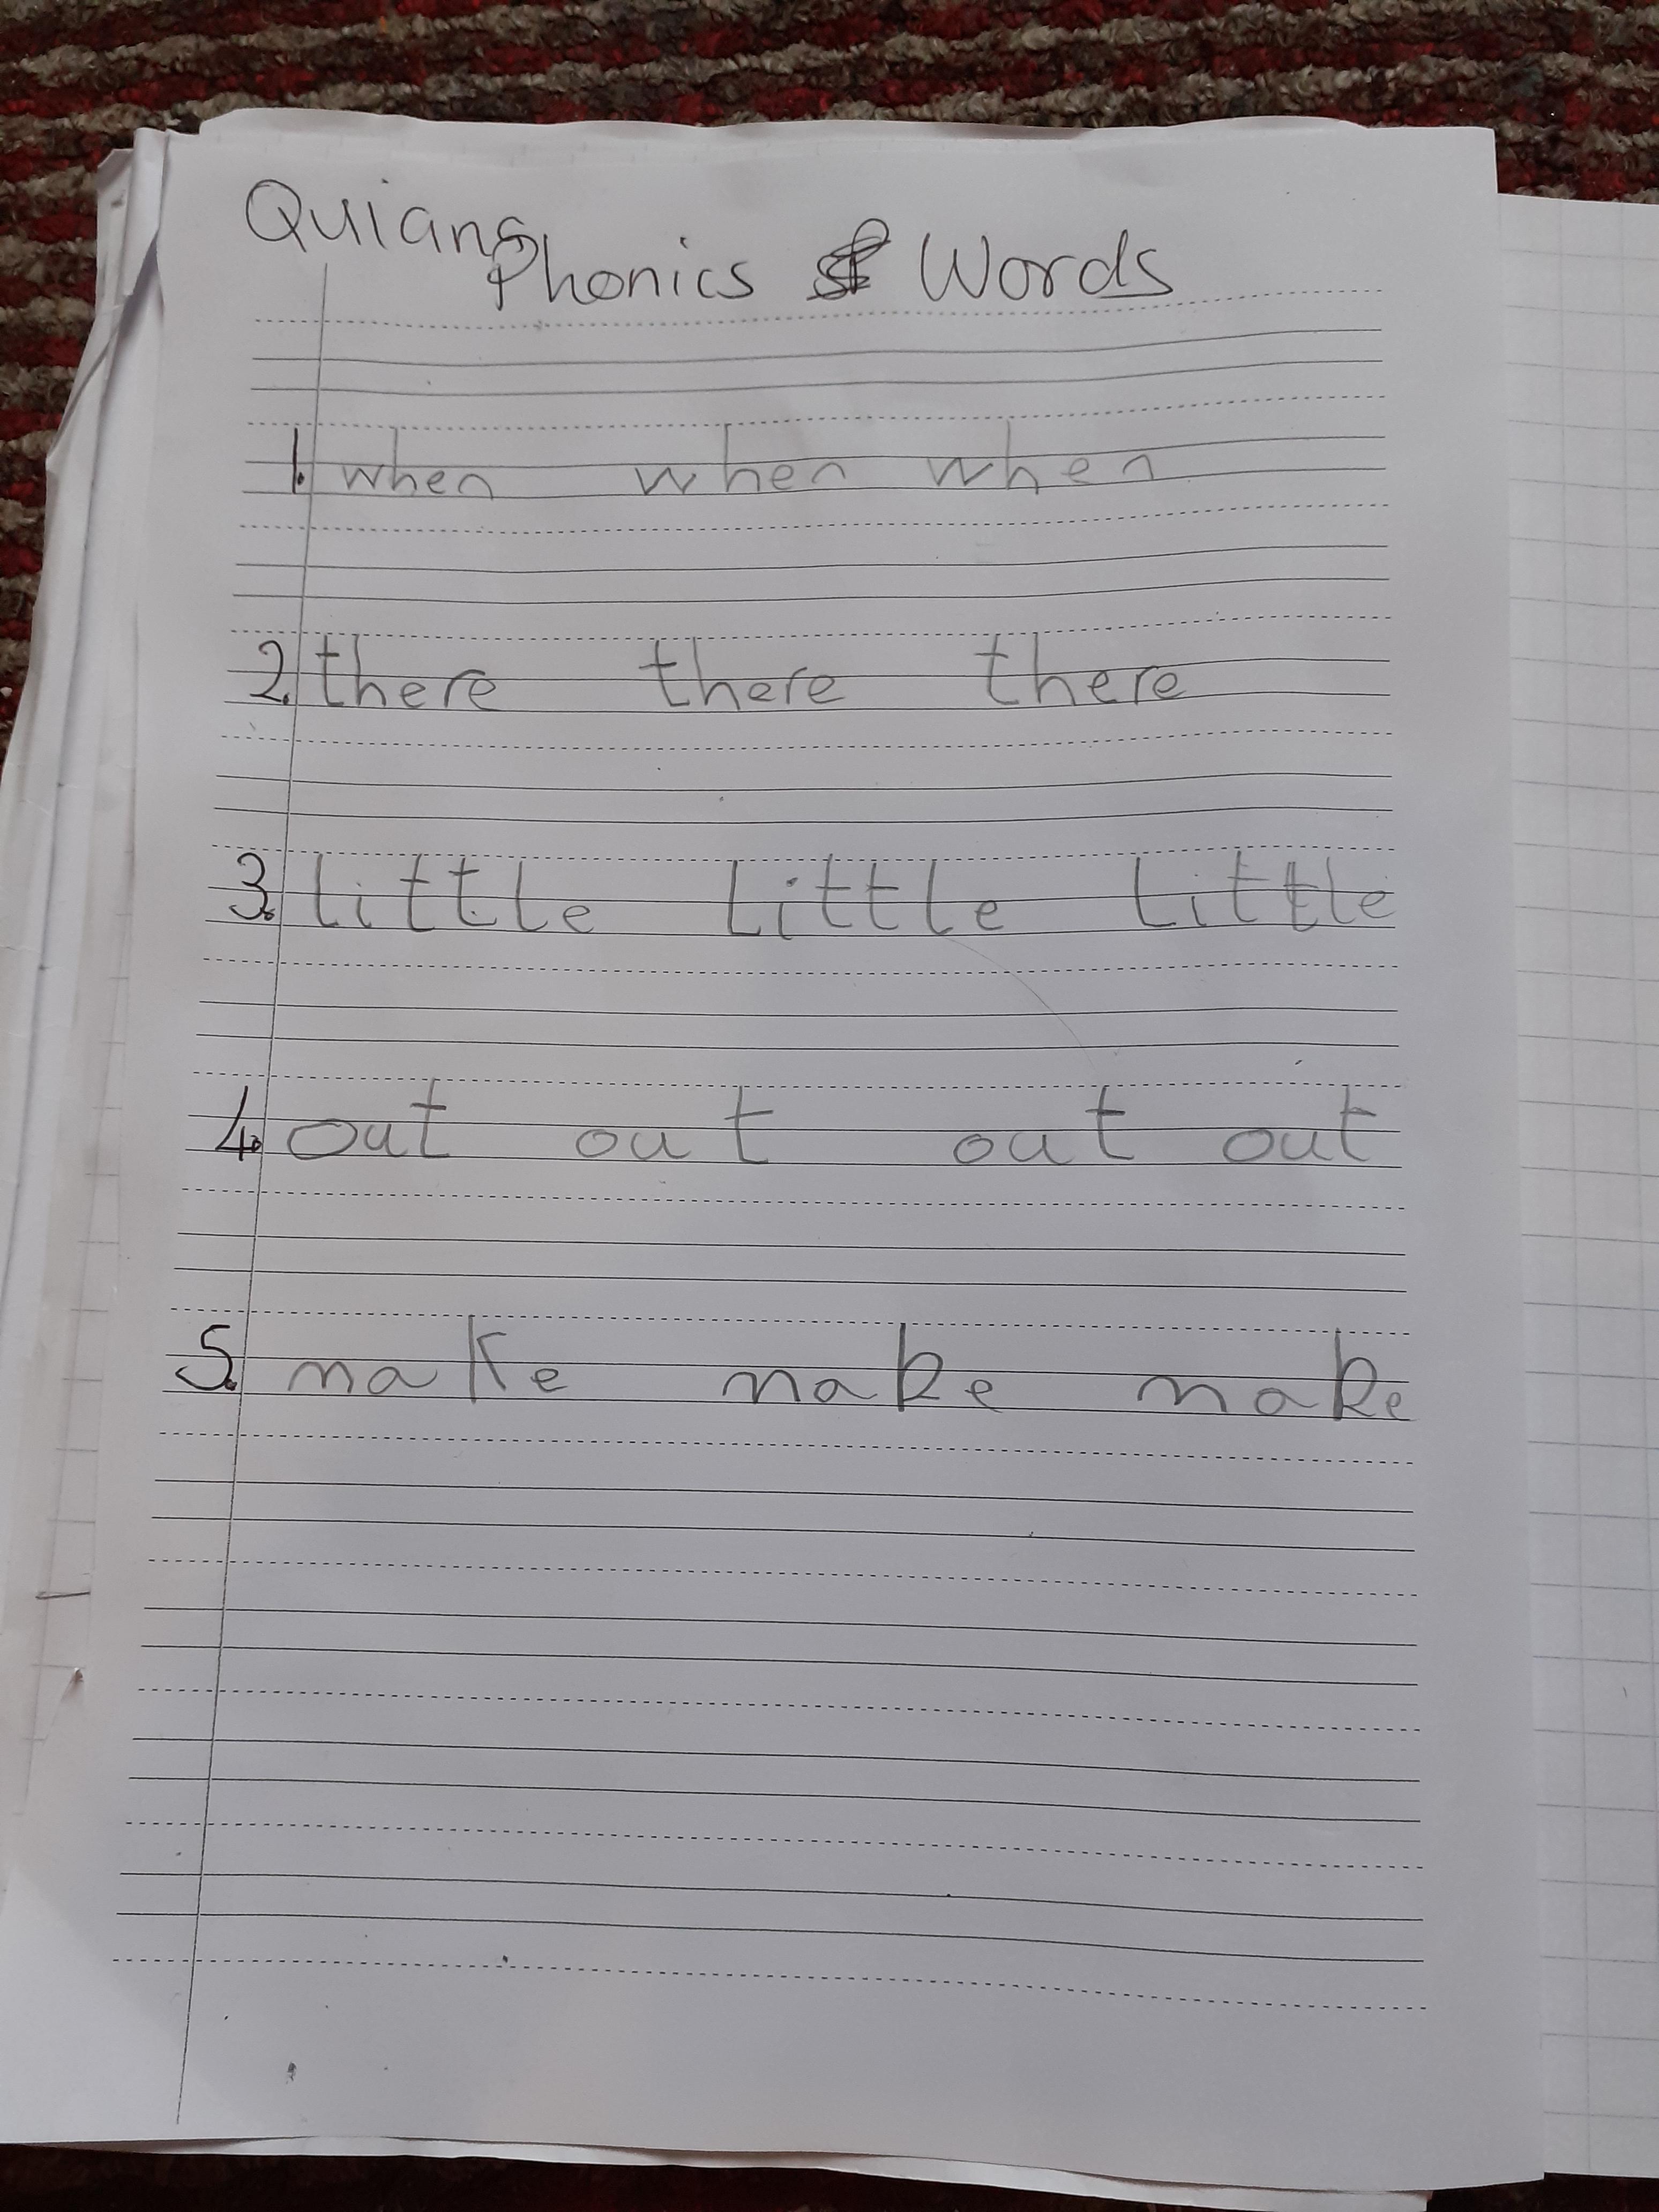 Quians
Phonics Words
1. when when when
2. there there there
3. little little little
4. out out out out
5. make make make